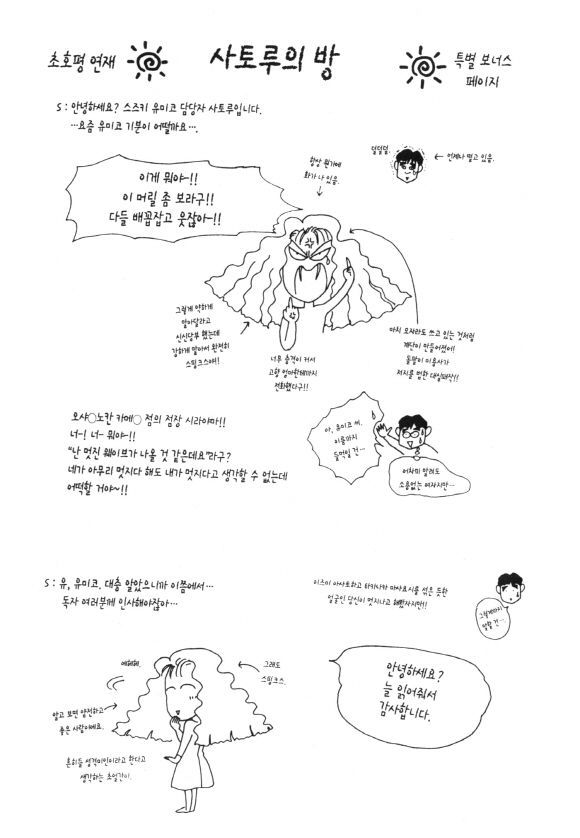 초호평 연재
사토루의 방
특별 보너스
페이지
S : 안녕하세요? 스즈키 유미코 담당자 사토루입니다.
…요즘 유미코 기분이 어떨까요….
덜덜덜.
← 언제나 떨고 있음.
항상 뭔가에
화가 나 있음.
이게 뭐야-!!
이 머릴 좀 보라구!!
다들 배꼽잡고 웃잖아-!!
그렇게 약하게
말아달라고
신신당부 했는데
강하게 말아서 완전히
스핑크스야!
너무 충격이 커서
고향 엄마한테까지
전화했다구!!
마치 모자라도 쓰고 있는 것처럼
계단이 만들어졌어!
돌팔이 미용사가
저지를 법한 대실패작!!
오샤○노칸 카메○ 점의 점장 시라이마!!
너-! 너- 뭐야-!!
"난 멋진 웨이브가 나올 것 같은데요"라구?
네가 아무리 멋지다 해도 내가 멋지다고 생각할 수 없는데
어떡할 거야~!!
아, 유미코 씨.
이름까지
들먹일 건…
어차피 말려도
소용없는 여자지만…
S : 유, 유미코. 대충 알았으니까 이쯤에서…
독자 여러분께 인사해야잖아…
이즈미 아사토하고 타키나카 마사요시를 섞은 듯한
얼굴인 당신이 멋지다고 해봤자지만!!
그렇게까지
말할 건…
에헤헤.
그래도
스핑크스.
알고 보면 얌전하고
좋은 사람이에요.
흔히들 성격미인이라고 한다고
생각하는 초얼간이.
안녕하세요?
늘 읽어줘서
감사합니다.